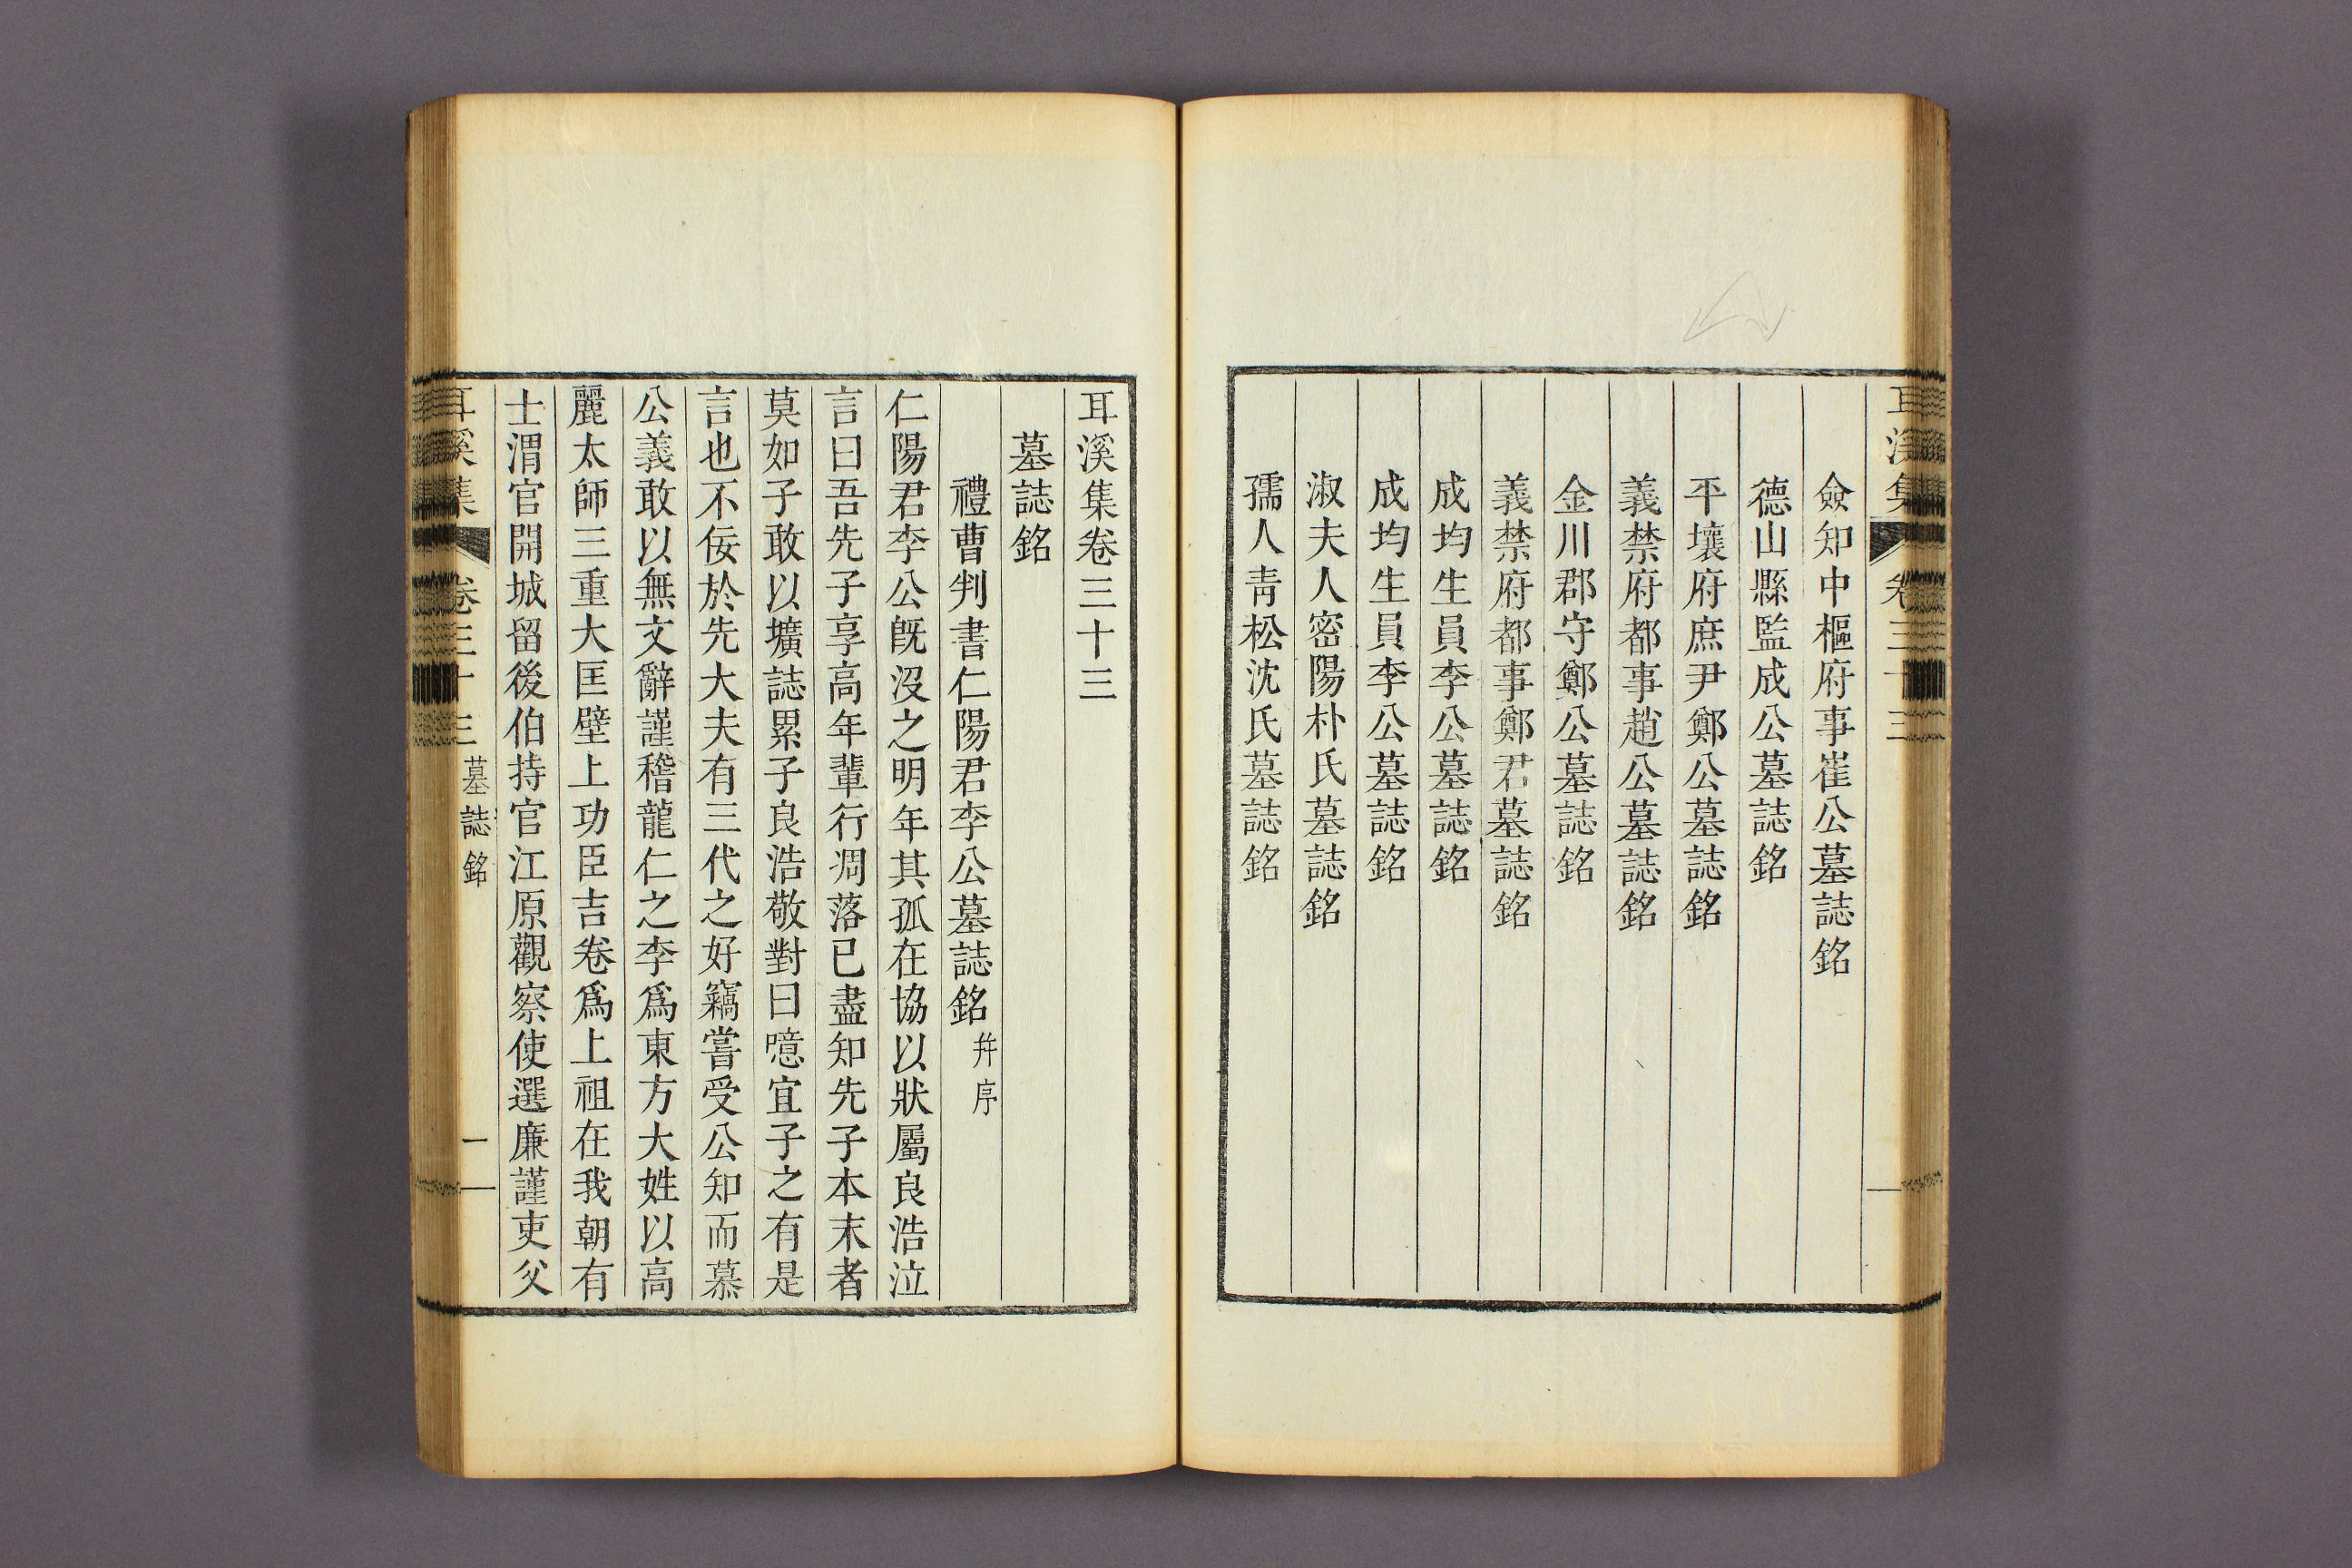 耳溪集 卷三十三
僉知中樞府事崔公墓誌銘
德山縣監成公墓誌銘
平壤府庶尹鄭公墓誌銘
義禁府都事趙公墓誌銘
金川郡守鄭公墓誌銘
義禁府都事鄭君墓誌銘
成均生員李公墓誌銘
成均生員李公墓誌銘
淑夫人密陽朴氏墓誌銘
孺人靑松沈氏墓誌銘
耳溪集卷三十三
墓誌銘
禮曹判書仁陽君李公墓誌銘 幷序
仁陽君李公旣沒之明年其孤在協以狀屬良浩泣
言曰吾先子享高年輩行凋落已盡知先子本末者
莫如子敢以壙誌累子良浩敬對曰噫宜子之有是
言也不佞於先大夫有三代之好竊嘗受公知而慕
公義敢以無文辭謹稽龍仁之李爲東方大姓以高
麗太師三重大匡壁上功臣吉卷爲上祖在我朝有
士渭官開城留後伯持官江原觀察使選廉謹吏父
耳溪集 卷三十三 墓誌銘 一